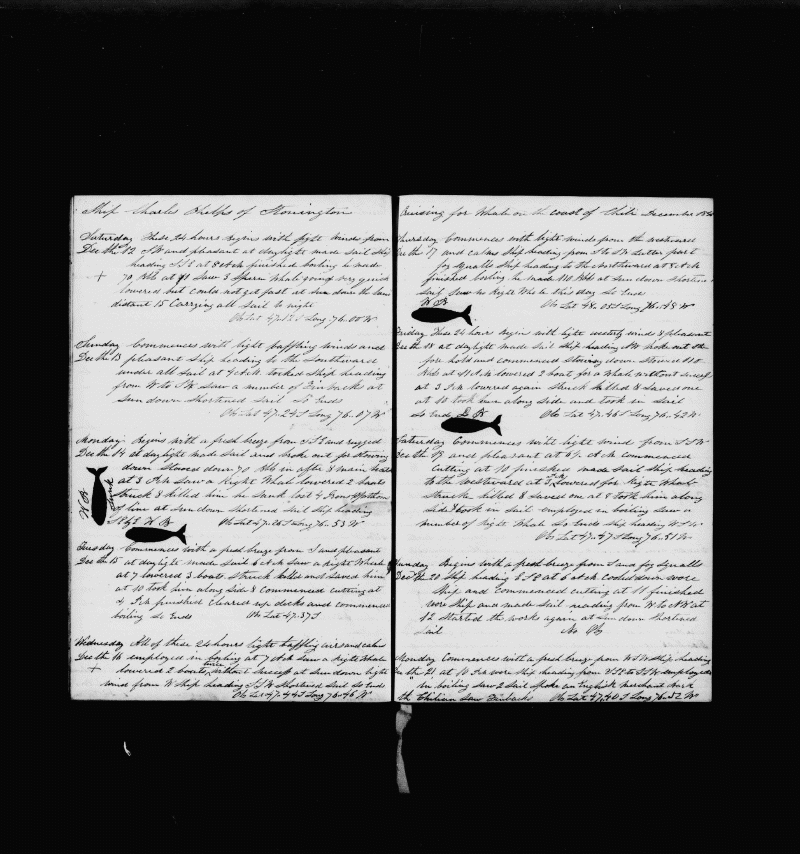 Ship Charles Phelps of Stonington
Saturday These 24 hours begins with light winds from
Dec th 12 SW and pleasant at daylight made sail ship
heading SSE at 8 AM finished boiling 
70 Bbls at 11 Saw 3 Sperm Whale going very quick
lowered but could not get fast at sun down the land
distant 15 Carrying all sail to night
Ob Lat 47.12 S Long 76.00 W
Sunday Commences with light baffling winds and
Dec th 13 pleasant Ship heading to the Southward
under all sail at 4 AM tacked Ship heading
from W to SW Saw a number of Finbacks at
Sun down Shortened Sail So Ends
Ob Lat 47.24 S Long 76.07 W
Monday Begins with a fresh breeze from SSE and rugged
Dec th 14 at daylight made Sail and broke out for Stowing
down Stowed down 70 Bbls in after & main
at 3 PM Saw a Right Whale lowered 2 boats
Struck & killed him he Sunk lost 4 Irons
of line at Sun down Shortened Sail Ship heading
W B
Sunk
W B Ob Lat 47.26 S Long 76.53 W
Tuesday Commences with a fresh breeze from S and pleasant
Dec th 15 at daylight made Sail 6 AM Saw a Right Whale
at 7 lowered 3 boats Struck killed and Saved him
at 10 took him along Side & commenced cutting at
4 PM finished cleared up decks and commenced
boiling So Ends Ob Lat 47.37 S
Wednesday All of these 24 hours light baffling airs and calms
Dec th 16 employed in boiling at 7 AM Saw a Right Whale
lowered 2 boats twice without Success at Sun down light
wind from W Ship heading SSW Shortened Sail So Ends
Ob Lat 47.44 S Long 76.46 W
Cruising for Whale on the coast of Chili December
Thursday Commences with light winds from the westward
Dec th 17 and calms Ship heading from S to SW latter part
foggy Squalls Ship heading to the Northward at 8 AM
finished boiling he made 110 Bbls at Sun down Shortened
Sail Saw no Right Whale this day So Ends
W B Ob Lat 48.05 S Long 76.48 W
Friday These 24 hours begin with light westerly winds & pleasant
Dec th 18 at daylight made Sail Ship heading NW broke out the
fore hold and commenced Stowing down Stowed 110
Bbls at 11 AM lowered 2 boat for a Whale without Success
at 3 PM lowered again Struck killed & Saved one
at 10 took him along side and took in Sail
So Ends L B Ob Lat 47.46 S Long 76.42 W
Saturday Commences with light wind from SSW
Dec th 19 and pleasant at 4 1/2 AM commenced
Cutting at 10 finished made Sail Ship heading
to the westward at lowered for Right Whale
Struck killed & Saved one at 8 took him along
Side took in Sail employed in boiling Saw a
number of Right Whale So Ends Ship heading
Ob Lat 47.47 S Long 76.51 W
Sunday Begins with a fresh breeze from S and foggy Squalls
Dec th 20 Ship heading at 6 AM cooled down wore
Ship and Commenced cutting at 11 finished
wore Ship and made Sail heading from W to NW at
12 Started the works again at Sun down Shortened
Sail No Ob
Monday Commences with a fresh breeze from WSW Ship heading
Dec th 21 at 11 PM wore Ship heading from to SSW employed
in boiling Saw 2 Sail Spoke an English merchant Bark
Saw Finbacks Ob Lat 47.40 S Long 76.52 W